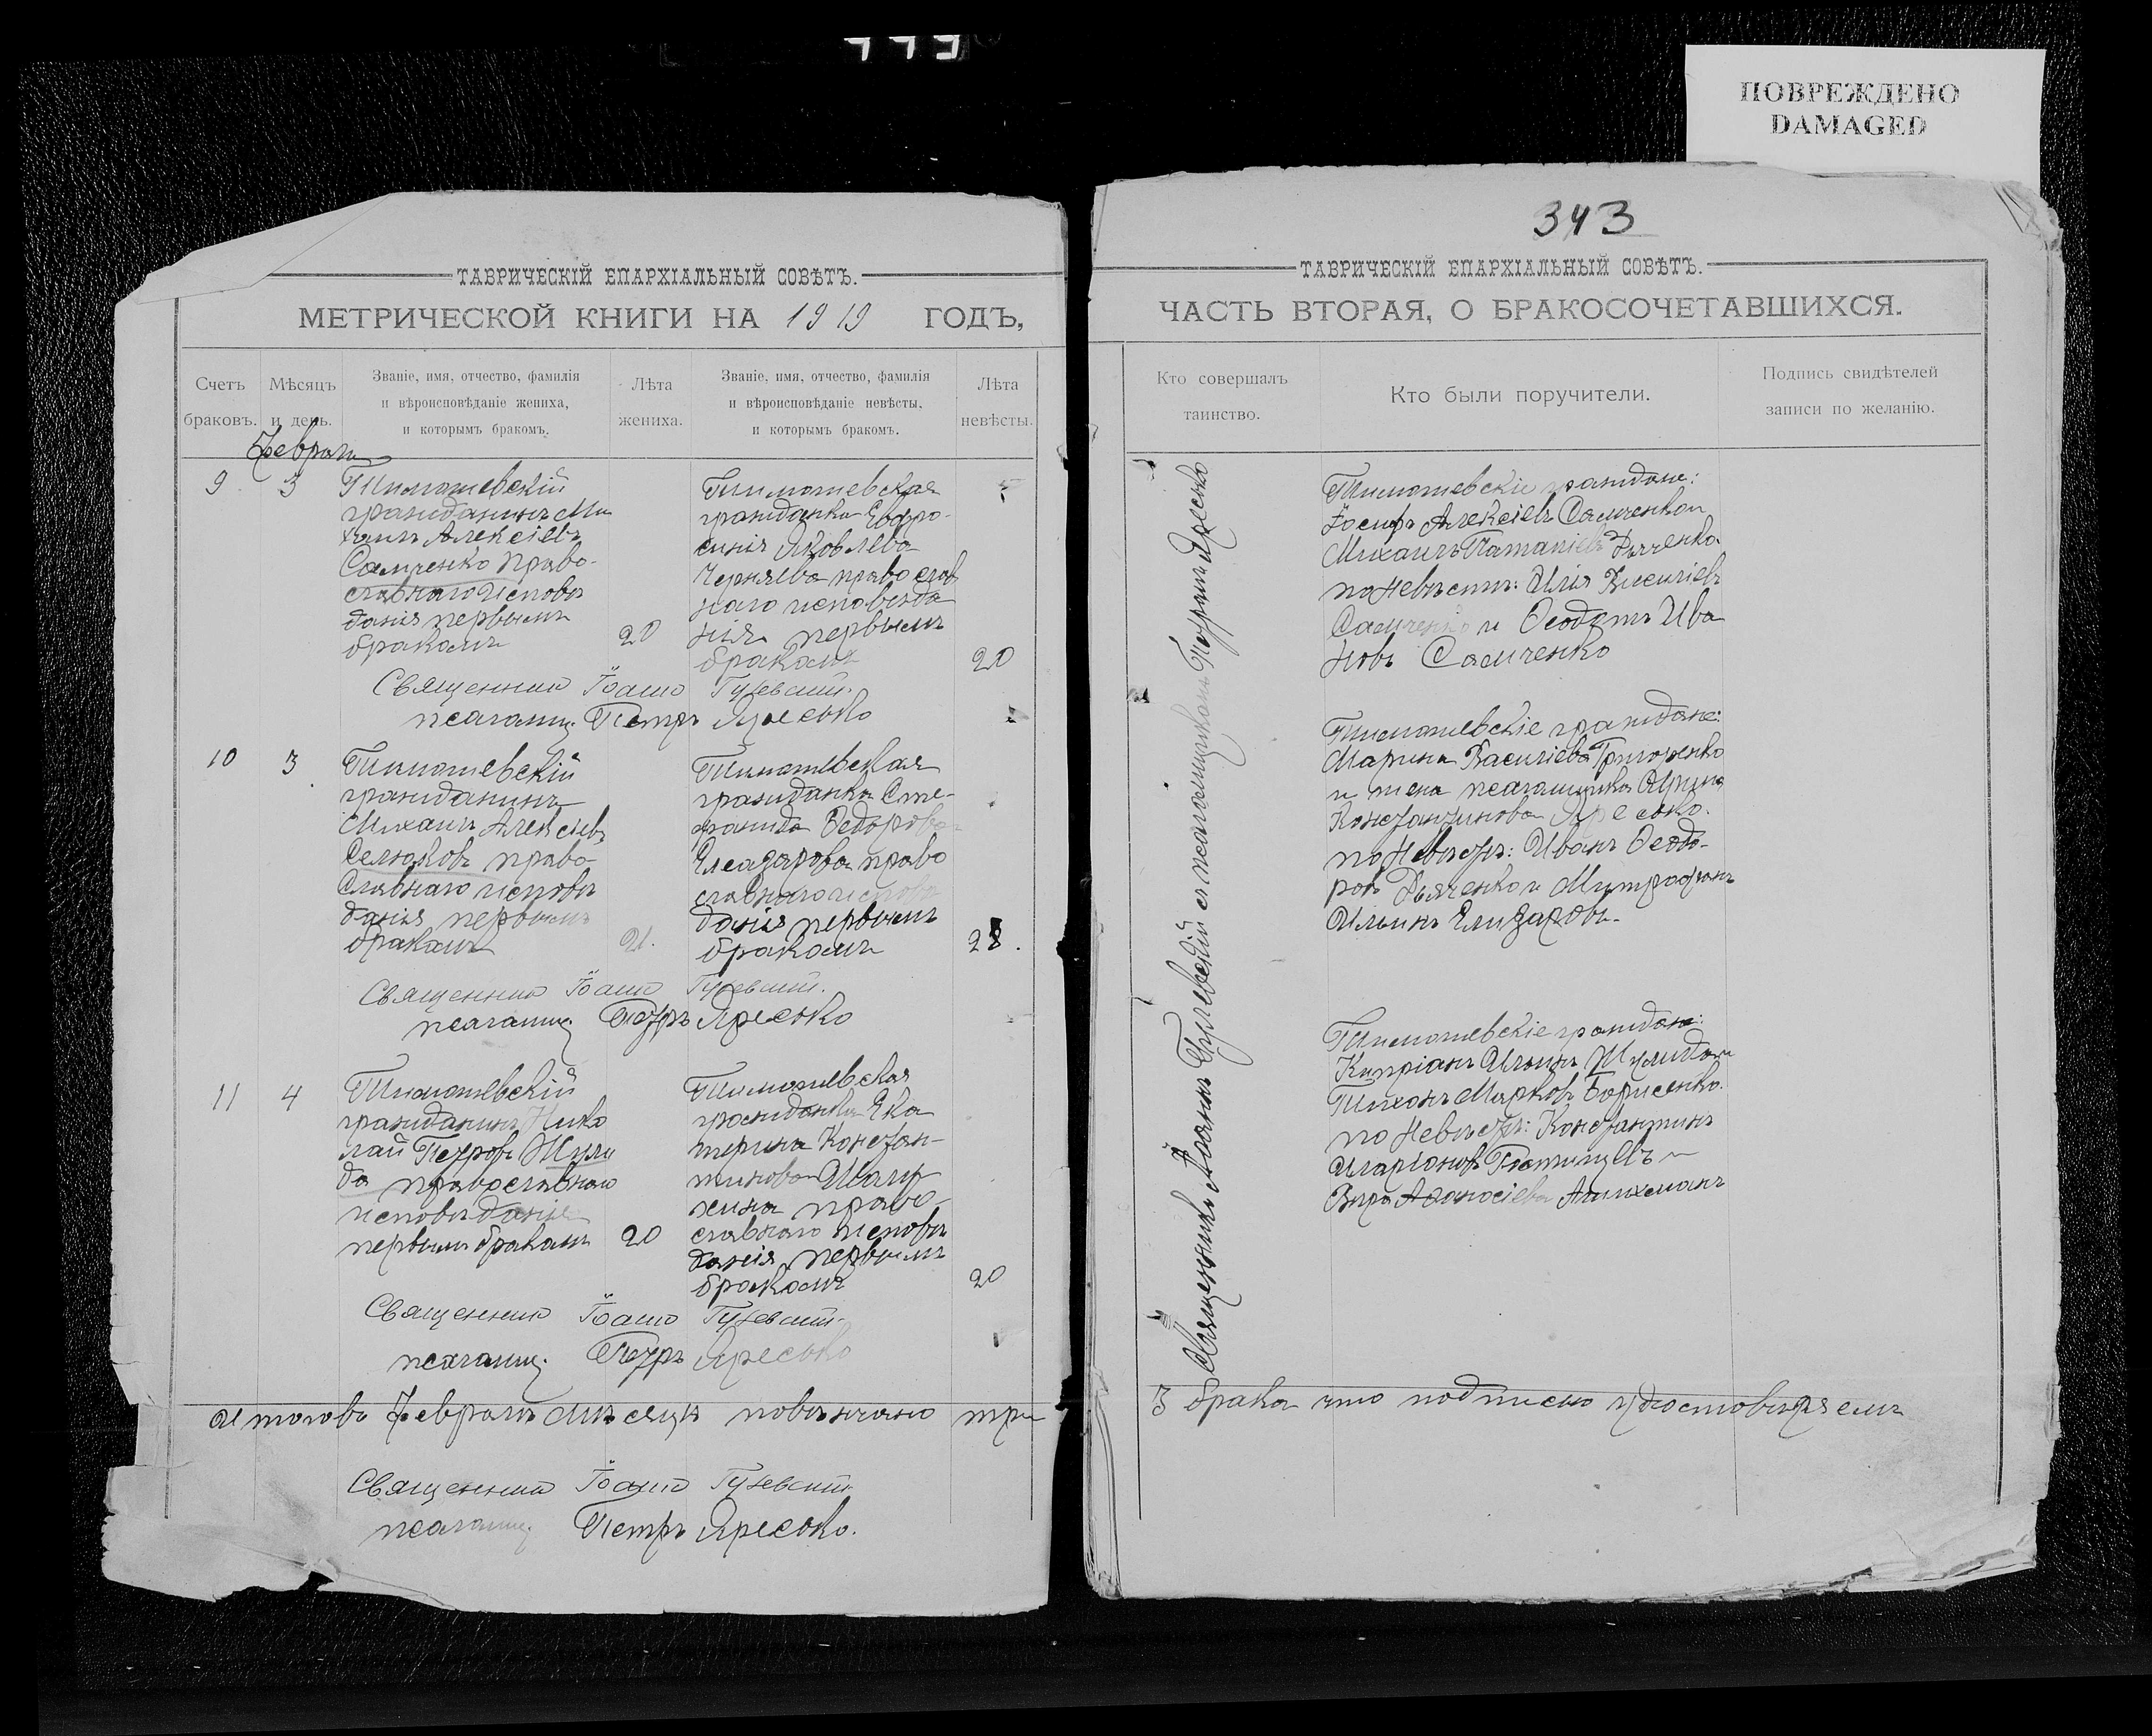 ПОВРЕЖДЕНО
DAMAGED
343
ТАВРИЧЕСКІЙ ЕПАРХІАЛЬНЫЙ СОВѢТЪ.
МЕТРИЧЕСКОЙ КНИГИ НА 1919 ГОДЪ,
Счетъ
браковъ.
Мѣсяцъ
и день.
Званіе, имя, отчество, фамилія
и вѣроисповѣданіе жениха,
и которымъ бракомъ.
Лѣта
жениха.
Званіе, имя, отчество, фамилія
и вѣроисповѣданіе невѣсты,
и которымъ бракомъ.
Лѣта
невѣсты.
Февраль
9
3
Тимошевскій
гражданинъ Ми
хаилъ Алексіевъ
Самченко право-
славнаго исповѣ
данія первымъ
бракомъ
20
Тимошевская
гражданка Евфро-
синія Яковлева
Черняева православ
наго исповѣда
нія первымъ
бракомъ
20
Священник Іоанн Гуževский
псаломщ. Петръ Яресько
10
3
Тимошевскій
гражданинъ
Михаилъ Алексіевъ
Селюковъ право
славнаго исповѣ
данія первымъ
бракомъ
21.
Тимошевская
гражданка Сте-
фанида Ѳедорова
Елеазарова право
славнаго исповѣ
данія первымъ
бракомъ
28.
Священник Іоанн
псаломщ. Петръ Яресько
11
4
Тимошевскій
гражданинъ Нико
лай Петровъ Жули
да православнаго
исповѣданія
первымъ бракомъ
20
Тимошевская
гражданка Ека
терина Констан-
тинова
жина право-
славнаго исповѣ
данія первымъ
бракомъ
20
Священник Іоанн
псаломщ. Петръ Яресько
Итого въ Февралѣ мѣсяцѣ повѣнчано три
Священник Іоанн
псаломщ. Петръ Яресько.
ТАВРИЧЕСКІЙ ЕПАРХІАЛЬНЫЙ СОВѢТЪ.
ЧАСТЬ ВТОРАЯ, О БРАКОСОЧЕТАВШИХСЯ.
Кто совершалъ
таинство.
Кто были поручители.
Подпись свидѣтелей
записи по желанію.
Священникъ Іоаннъ съ псаломщикомъ Петромъ Яресько
Тимошевскіе граждане:
Іосифъ Алексіевъ Самченко и
Михаилъ Дьяченко
по невѣстѣ: Илія Василіевъ
Самченко и Ѳеодотъ Ива
новъ Самченко
Тимошевскіе граждане:
Марина Василіева Григоренко
и жена псаломщика Ирина
Константинова Яресько.
по невѣстѣ: Иванъ Ѳеодо-
ровъ Дьяченко и Митрофанъ
Ильинъ Елизаровъ.
Тимошевскіе граждане:
Кипріанъ Ильинъ Жулида и
Тихонъ Марковъ Борисенко.
по невѣстѣ: Константинъ
Иларіоновъ и
Вѣра Аѳанасіева
3 брака что подписью удостовѣряемъ